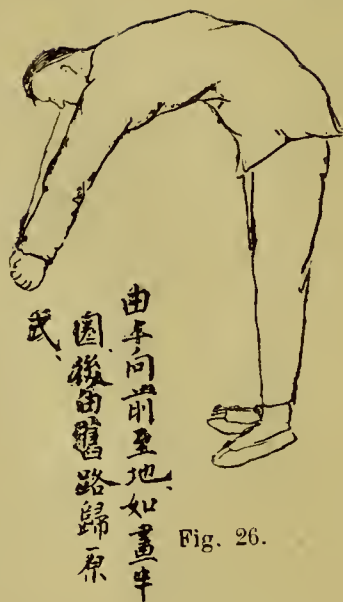 由向前至地、如畫半
圈、後由舊路歸原
武、
Fig. 26.